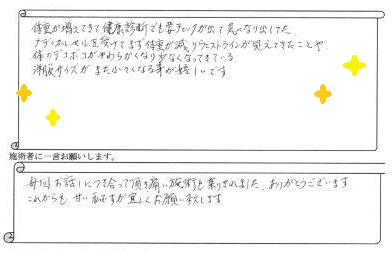 体重が増えてきて健康診断でも要チェックが出て気になり出してた。
ナディカルセルを受けてまず体重が減りウエストラインが見えてきたことや
体のデコボコがやわらかくなり少なくなってきている
洋服サイズがまた小さくなる事が嬉しいです
施術者に一言お願いします。
毎回お話しにつき合って頂き痛い施術も楽りきれました。ありがとうございます
これからも甘い私ですが宜しくお願い致します